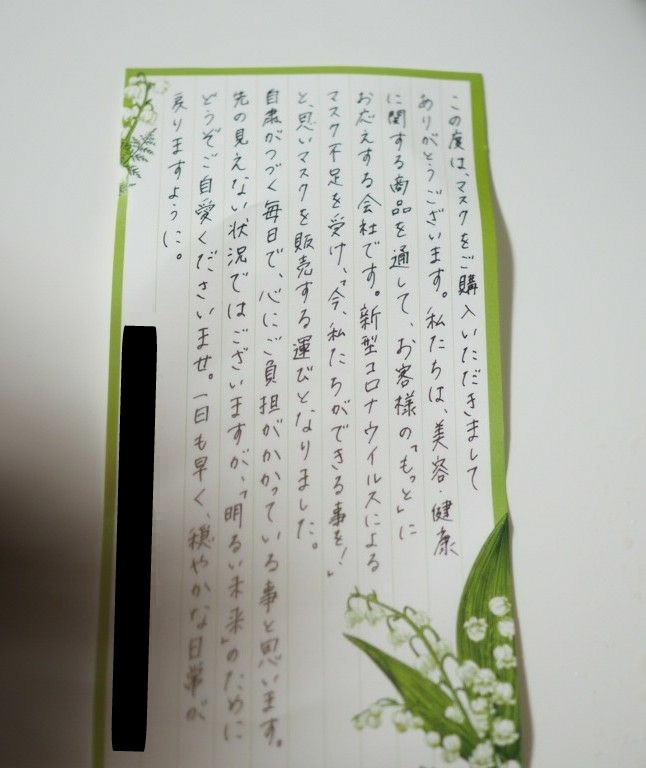 この度は、マスクをご購入いただきまして
ありがとうございます。私たちは、美容・健康
に関する商品を通して、お客様の「もっと」に
お応えする会社です。新型コロナウイルスによる
マスク不足を受け、「今、私たちができる事を！」
と、思いマスクを販売する運びとなりました。
自粛がつづく毎日で、心にご負担がかかっている事と思います。
先の見えない状況ではございますが、「明るい未来」のために
どうぞご自愛くださいませ。一日も早く、穏やかな日常が
戻りますように。